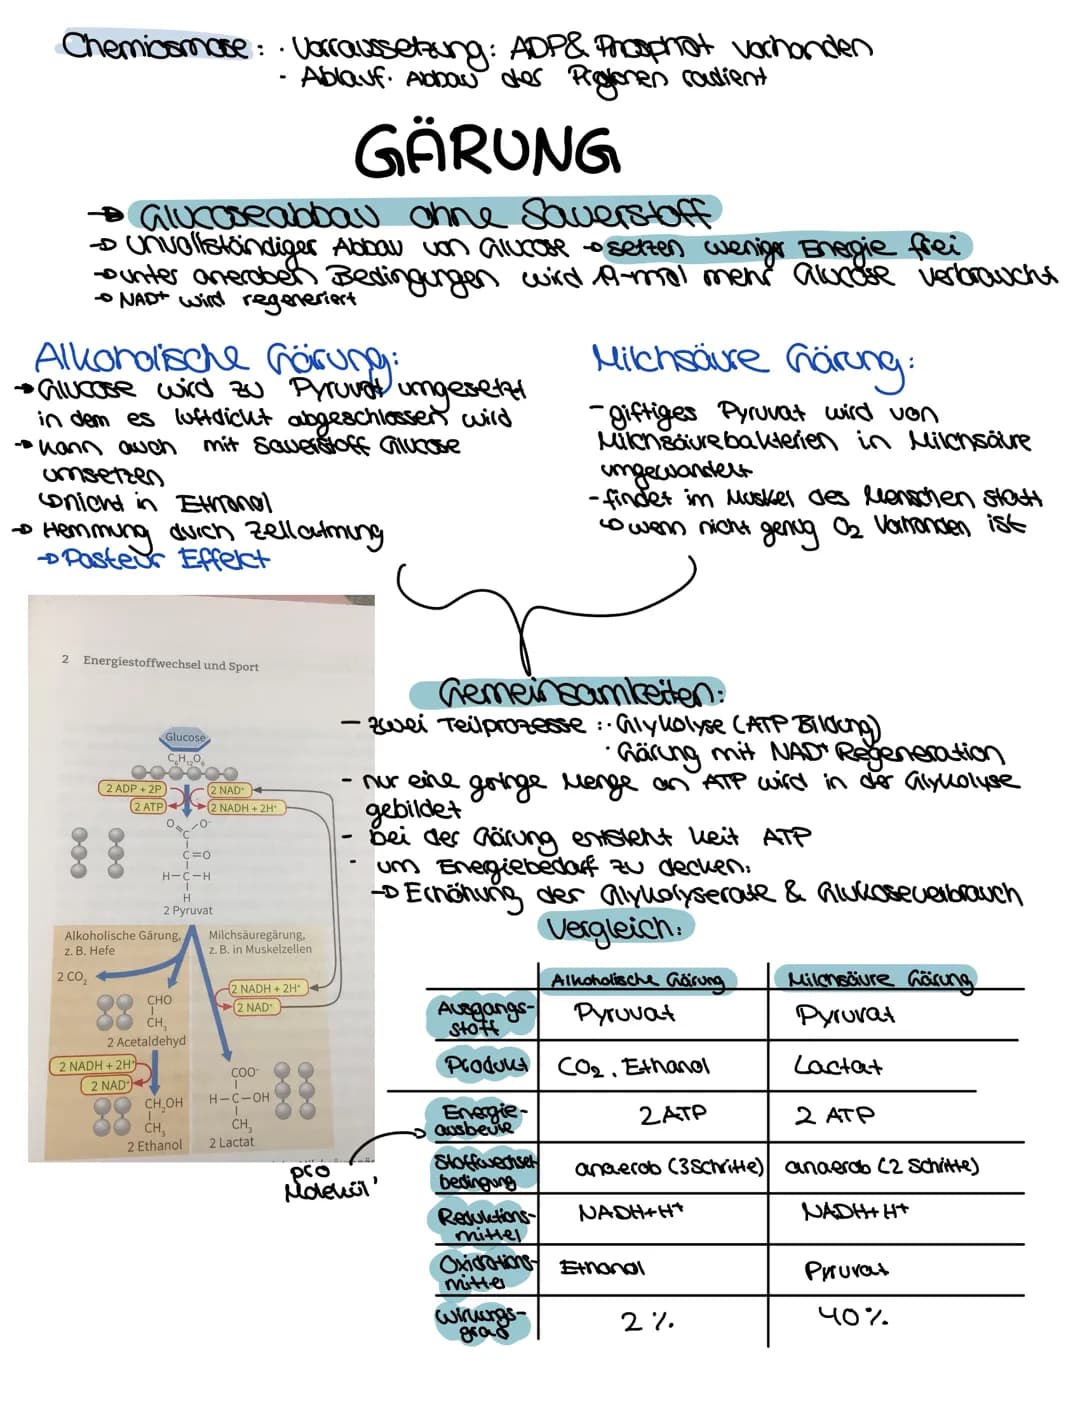 Chemiosmose: · Vorraussetzung: ADP & Phosphat vorhanden
- Ablauf: Abbau des Protonen radient
GÄRUNG
→ Glucoseabbau ohne Sauerstoff
→ Unvollständiger Abbau von Glucose → setzen weniger Energie frei
→ unter aneroben Bedingungen wird 19-mal mehr Glucose verbraucht
→ NAD+ wird regeneriert
Alkoholische Gärung:
→ Glucose wird zu Pyruvat umgesetzt
in dem es luftdicht abgeschlossen wird
→ kann auch mit Sauerstoff Glucose
umsetzen
↳ nicht in Ethanol
→ Hemmung durch Zellatmung
→ Pasteur Effekt
Milchsäure Gärung:
- giftiges Pyruvat wird von
Milchsäurebakterien in Milchsäure
umgewandelt
- findet im Muskel des Menschen statt
↳ wenn nicht genug O₂ Vorhanden ist
2 Energiestoffwechsel und Sport
Glucose
C₆H₁₂O₆
2 ADP + 2P 2 NAD⁺
2 ATP 2 NADH + 2H⁺
O O⁻
C
C=O
H-C-H
H
2 Pyruvat
Alkoholische Gärung, Milchsäuregärung,
z. B. Hefe z. B. in Muskelzellen
2 CO₂
2 NADH + 2H⁺
2 NAD⁺
CHO
CH₃
2 Acetaldehyd
2 NADH + 2H⁺
2 NAD⁺
CH₂OH
CH₃
2 Ethanol
COO⁻
H-C-OH
CH₃
2 Lactat
Gemeinsamkeiten:
- zwei Teilprozesse :· Glykolyse (ATP Bildung)
· Gärung mit NAD⁺ Regeneration
- nur eine geringe Menge an ATP wird in der Glykolyse
gebildet
- bei der Gärung entsteht keit ATP
- um Energiebedarf zu decken:
→ Erhöhung der Glykolyserate & Glukoseverbrauch
Vergleich:
Alkoholische Gärung Milchsäure Gärung
Ausgangs-
stoff Pyruvat Pyruvat
Produkt CO₂, Ethanol Lactat
Energie-
ausbeute 2 ATP 2 ATP
pro
Molekül
Stoffwechsel
bedingung anaerob (3 Schritte) anaerob (2 Schritte)
Reduktions-
mittel NADH+H⁺ NADH+H⁺
Oxidations-
mittel Ethanal Pyruvat
Wirkungs-
grad 2% 40%